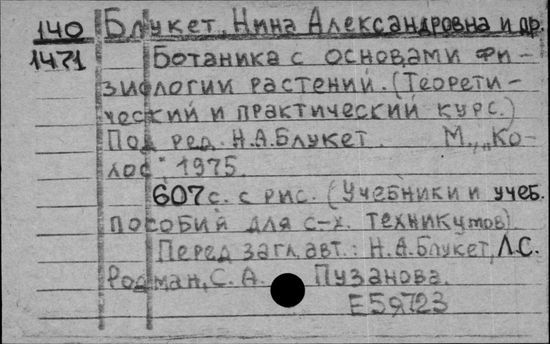 140 Блукет, Нина Александровна и др.
1471 Ботаника с основами фи-
зиологии растений. (Теорети-
ческий и практический курс.)
Под ред. Н.А.Блукет. М., „Ко-
лос", 1975.
607с. с рис. (Учебники и учеб.
пособий для с-х. техникумов)
Перед загл. авт.: Н.А.Блукет, Л.С.
Родман, С.А. Пузанова.
Е59723